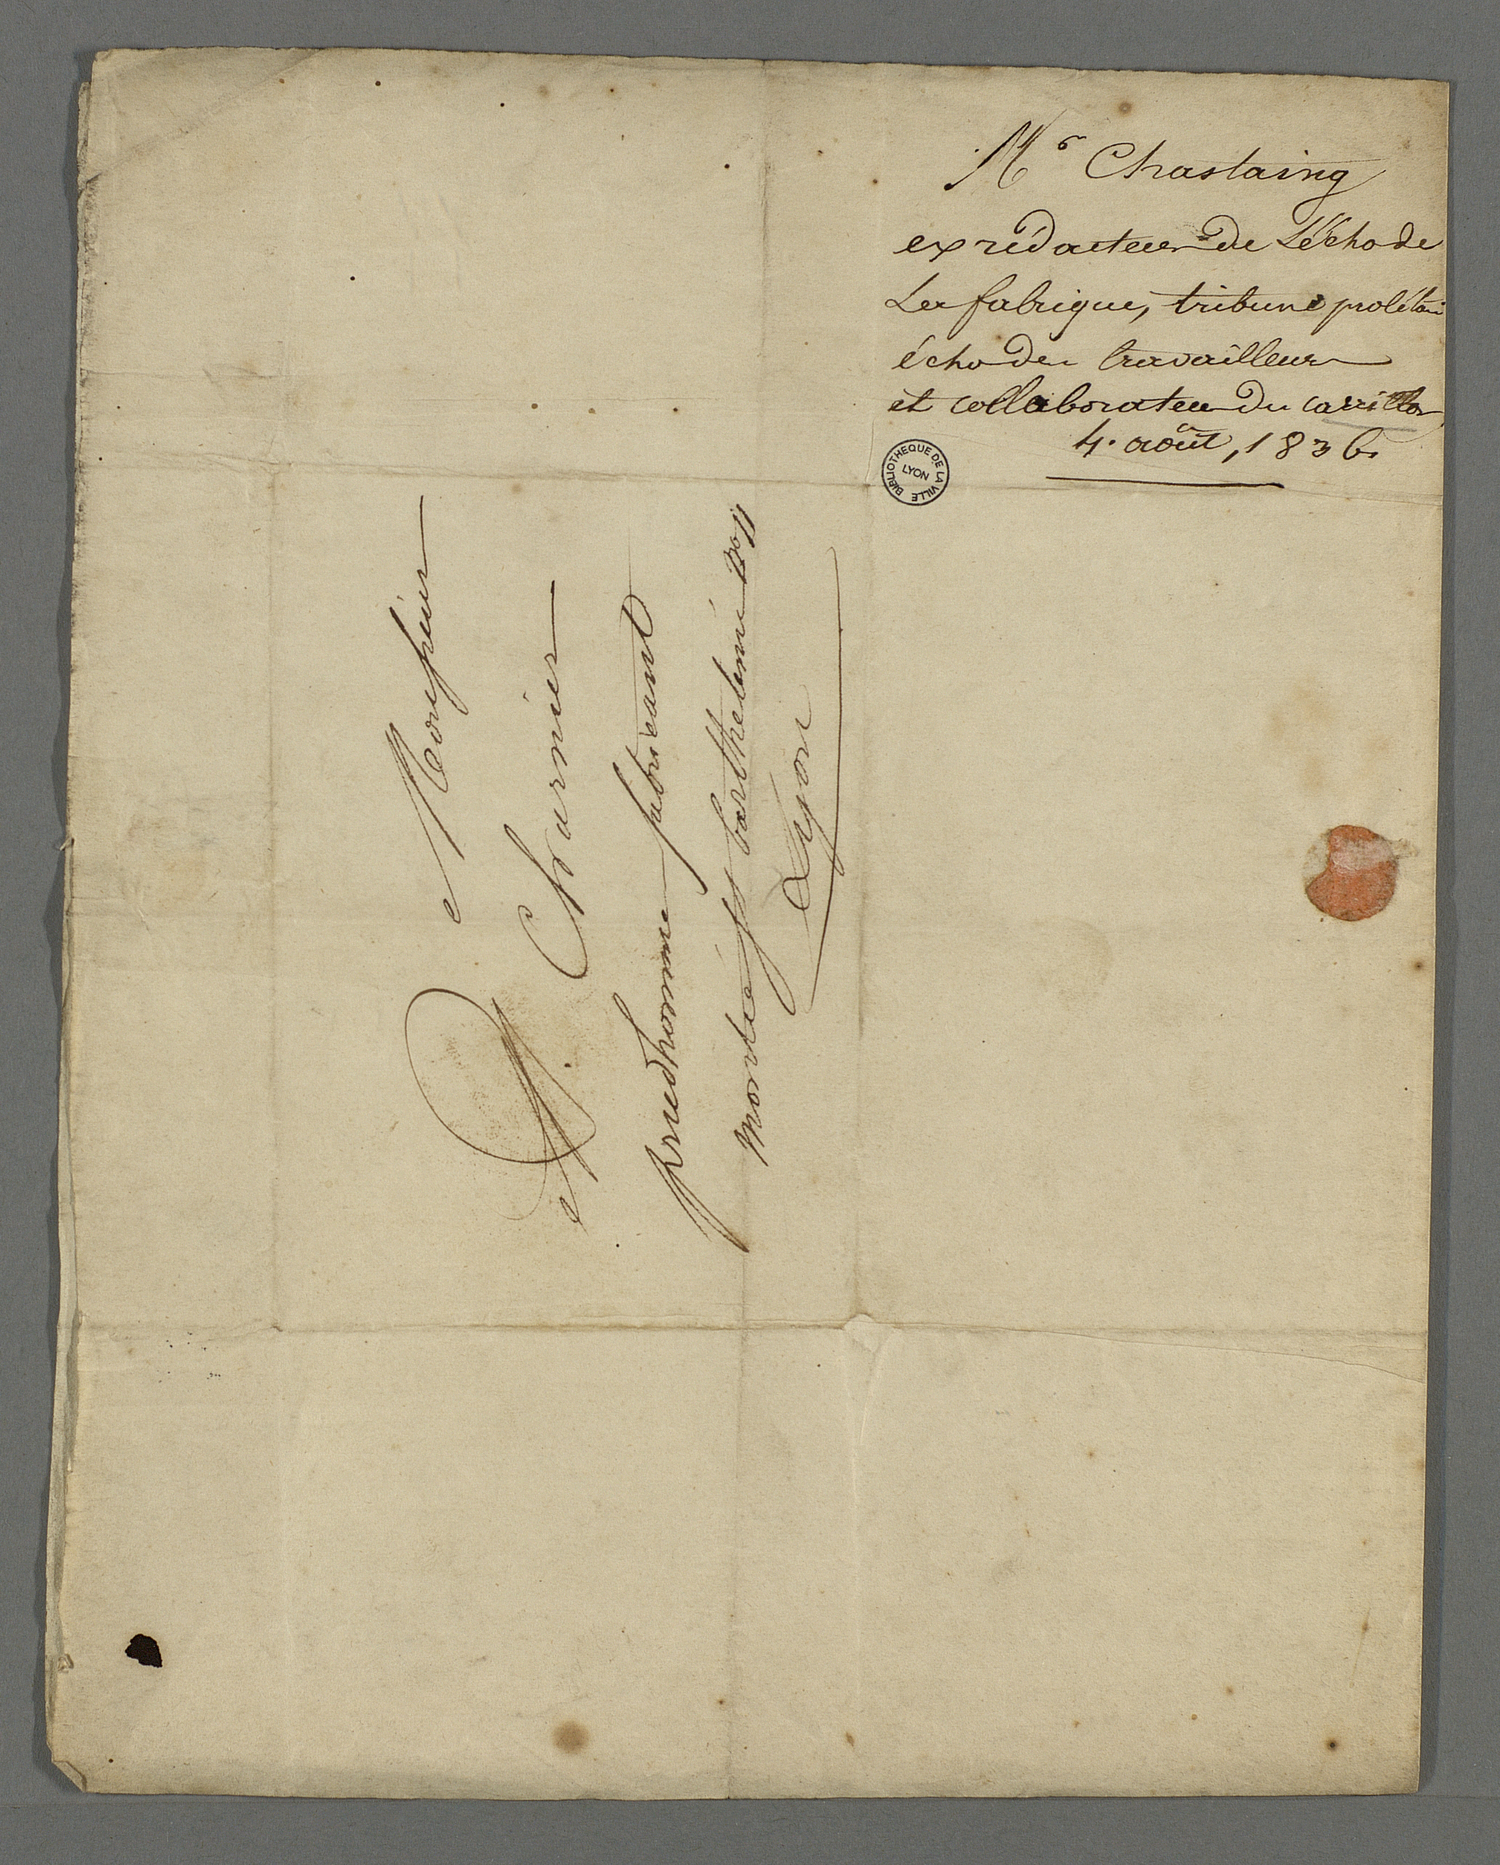 Mr Chastaing
ex rédacteur de L'écho de
La fabrique, tribune prolétai
écho des travailleurs
et collaborateur du carrillon
4. août, 1836
BIBLIOTHEQUE DE LA VILLE
LYON
Monsieur
A Charnier
prud'homme fabricant
montée St barthelemi
Lyon